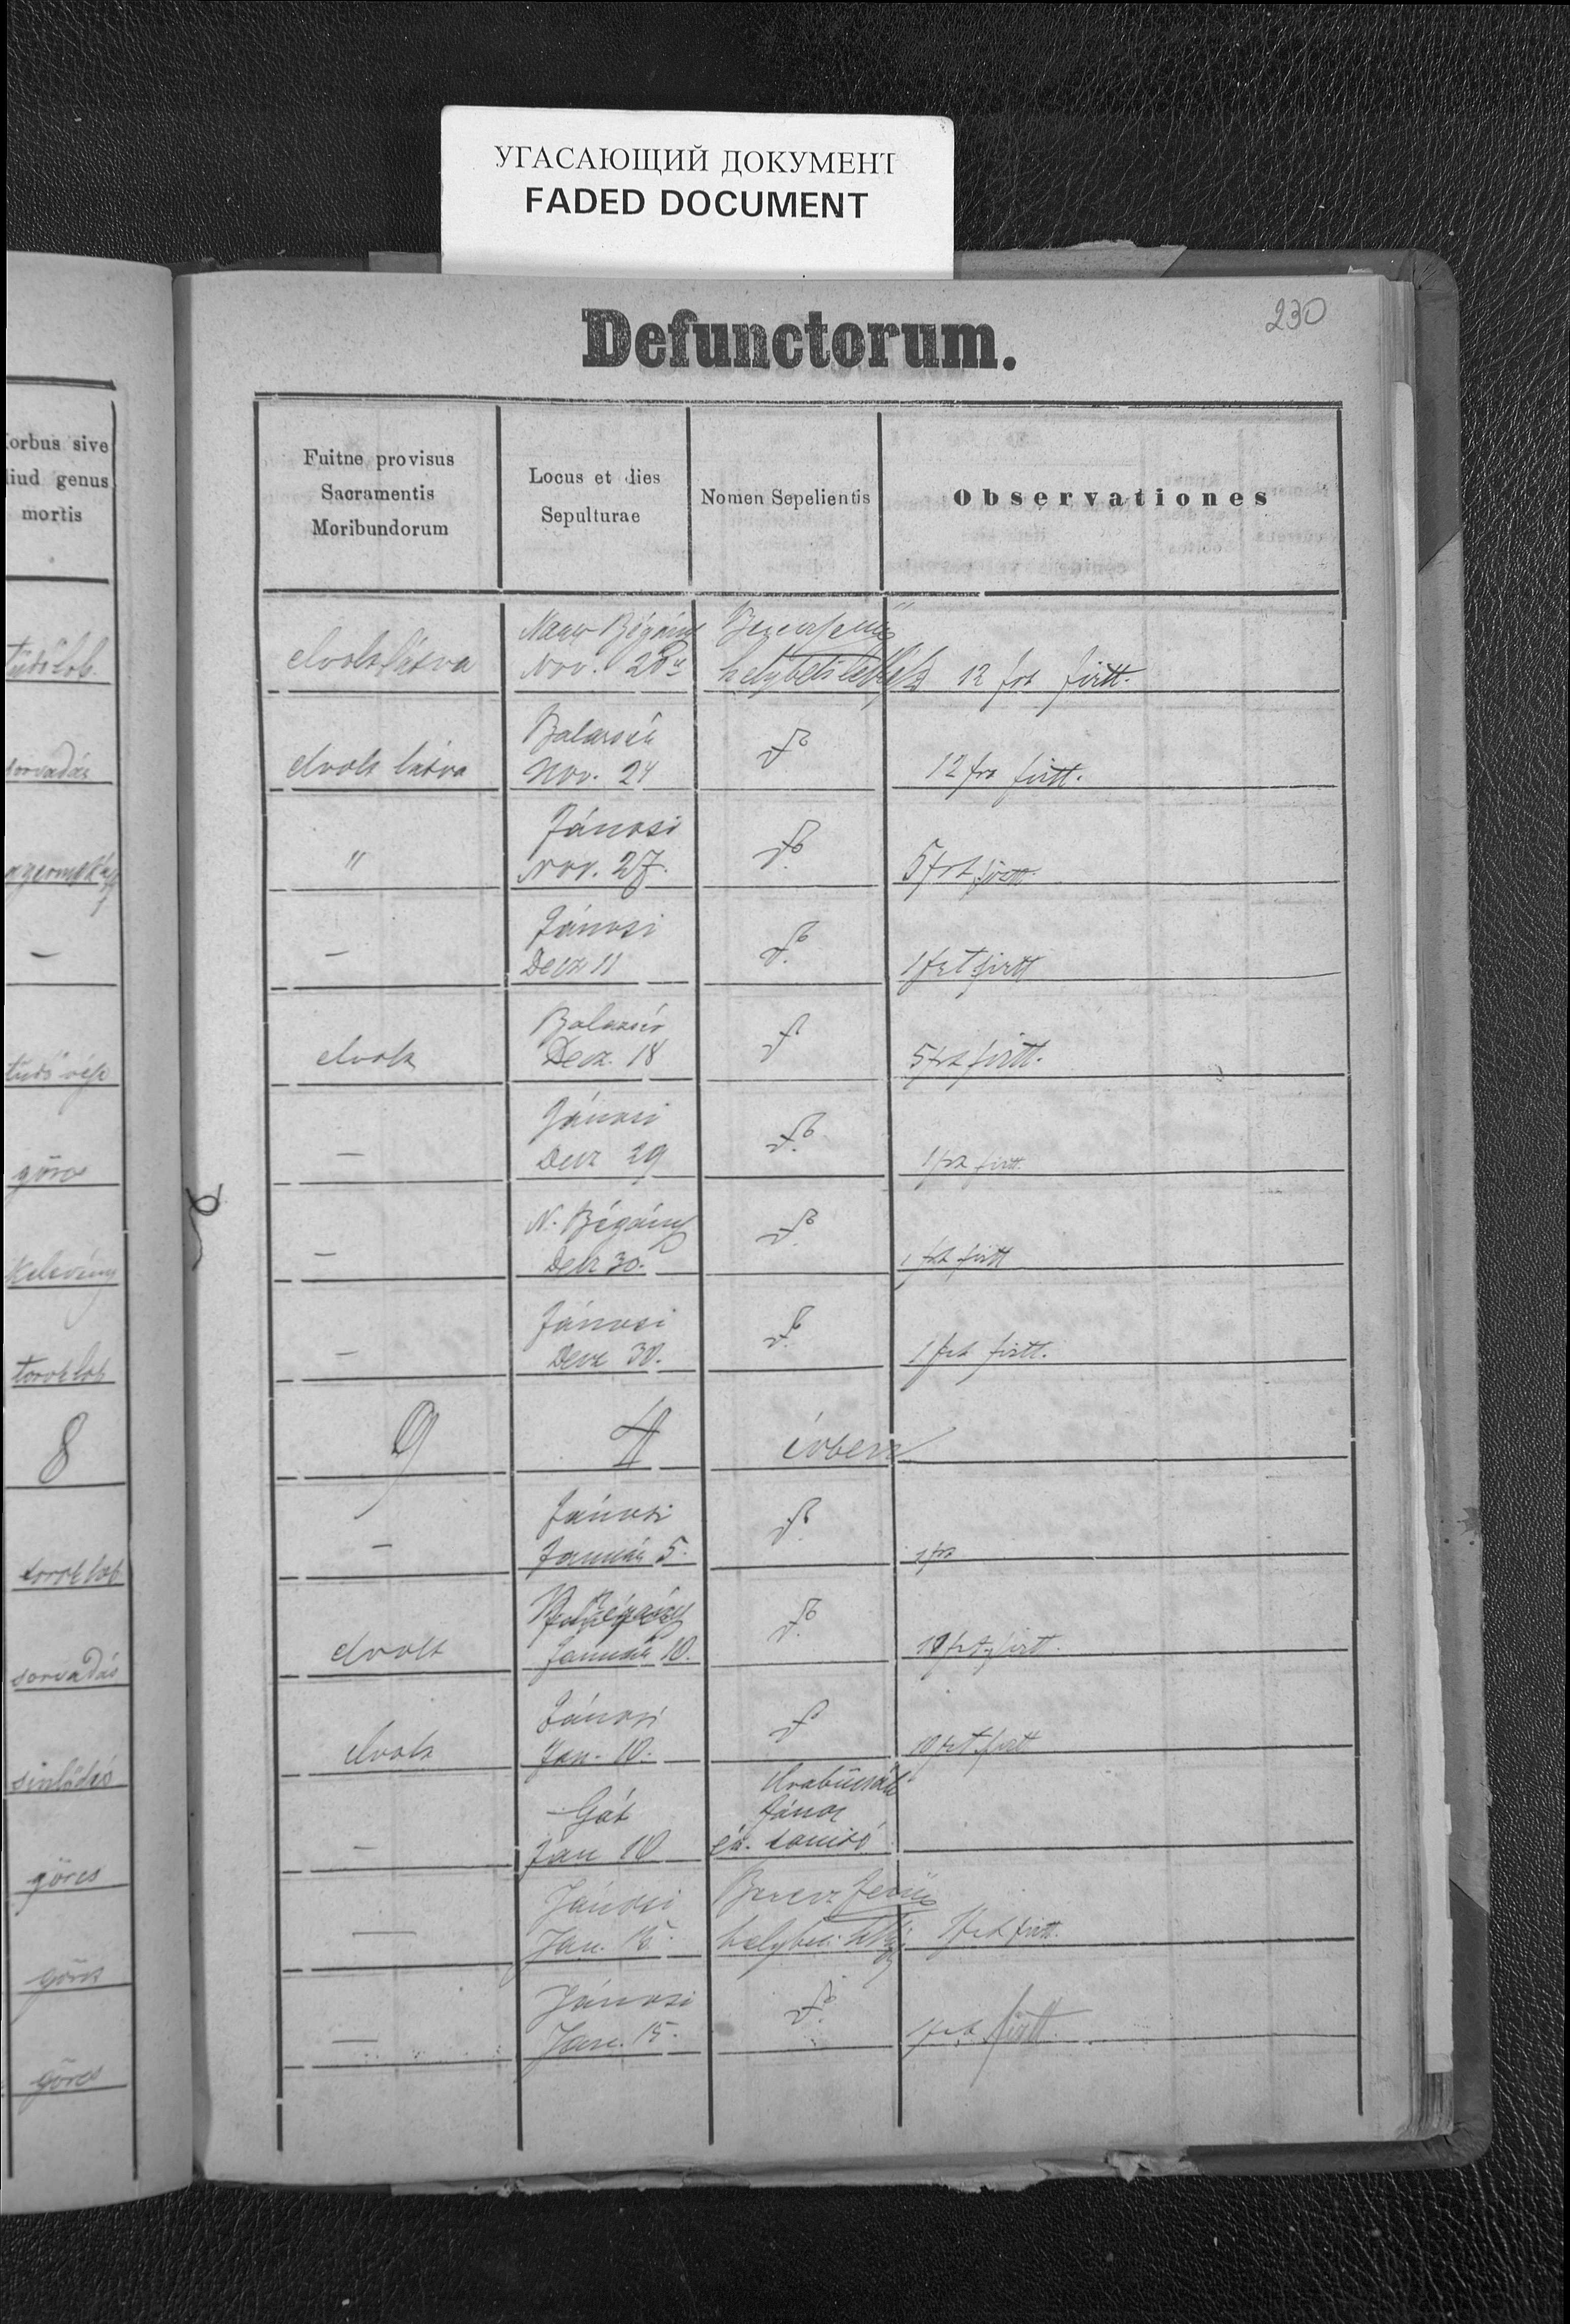 УГАСАЮЩИЙ ДОКУМЕНТ
FADED DOCUMENT
230
Defunctorum.
orbus sive
liud genus
mortis
Fuitne provisus
Sacramentis
Moribundorum
Locus et dies
Sepulturae
Nomen Sepelientis
Observationes
tüdőlob
elvolt látva
Nagy Bégány
Nov.
helybeli lelkész
12 frt fiztt.
sorvadás
elvolt látva
Balazsér
Nov. 24
12 frt fiztt.
"
Jánosi
Nov. 27.
5 frt fizett
–
–
Jánosi
Decz 11
1 frt fizett
tüdővész
elvolt
Balazsér
Decz. 18
5 frt fizett.
görcs
–
Jánosi
Decz 29
1 frt fizett.
Kelevény
–
N. Bégány
Decz 30.
1 frt fizett
toroklob
–
Jánosi
Decz 30.
1 frt fizett.
8
9
4
évben
toroklob
–
Jánosi
Január 5.
1 frt
sorvadás
elvolt
Bégány
Január 10.
10 frt fizett.
sinlődés
elvolt
Jánosi
Jan. 10.
10 frt fizett
görcs
–
Gát
Jan 10
János
tanító
görcs
–
Jánosi
Jan. 15.
Berecz Jenő
helybeli
1 frt fizett.
görcs
–
Jánosi
Jan. 15.
1 frt fizett.